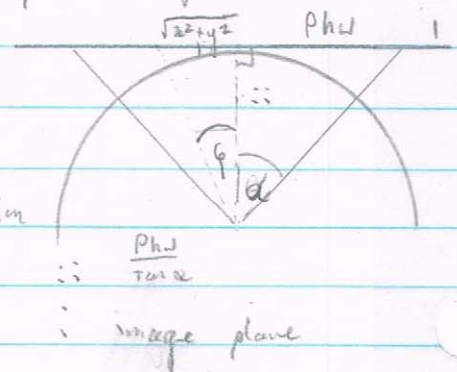 √x²+y² Phw 1
φ α
Phw
Tan α
image plane